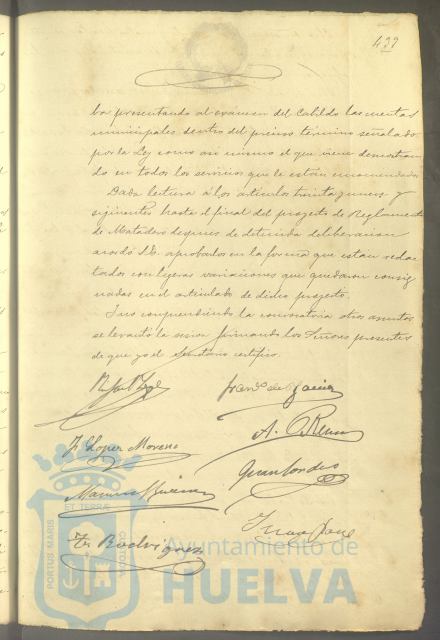 439
ba presentando al exámen del Cabildo las cuentas
municipales dentro del preciso término señalado
por la Ley como asi mismo el que viene demostran
do en todos los servicios que le están encomendados
Dada lectura á los artículos treinta y nueve y
siguientes hasta el final del proyecto de Reglamento
de Matadero despues de detenida deliberacion
acordó S.E. aprobarlos en la forma que estan redac
tados con lijeras variaciones que quedaron consig
nadas en el articulado de dicho proyecto.
Y no comprendiendo la convocatoria otros asuntos
se levantó la sesion firmando los Señores presentes
de que yo el Secretario certifico.
Franco de
J. Lopez Moreno
A.
Manuel
Rodriguez
Juan
PORTUS MARIS
ET TERRÆ
CUSTODIA
Ayuntamiento de
HUELVA